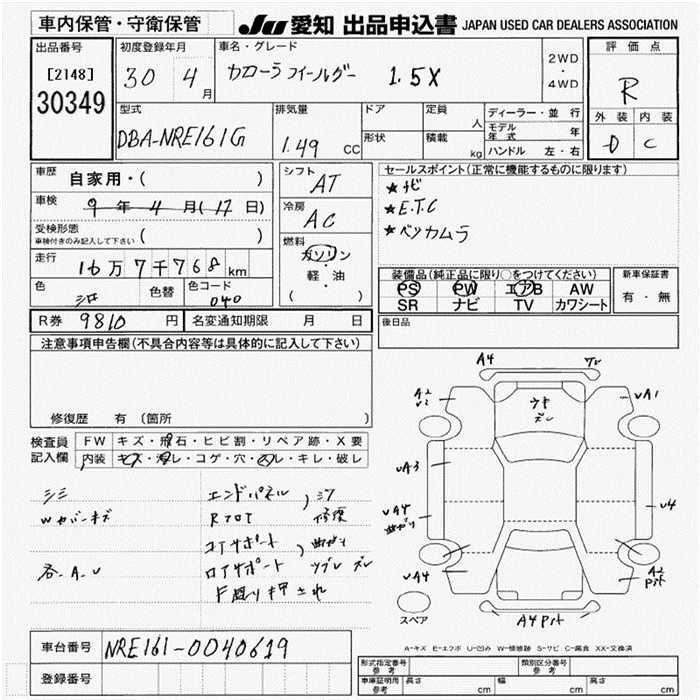 車内保管・守衛保管
JU 愛知 出品申込書 JAPAN USED CAR DEALERS ASSOCIATION
出品番号
[2148]
30349
初度登録年月
30 4 月
車名・グレード
カローラ フィールダー 1.5X
2WD
・
4WD
評価点
R
外装 内装
D C
型式
DBA-NRE161G
排気量
1.49 CC
ドア
形状
定員 人
積載 kg
ディーラー・並行
モデル年式 年
ハンドル 左・右
車歴
自家用・( )
車検
9年4月(17日)
受検形態
車検付きのみ記入して下さい ( )
走行
16万7千768km
色
シロ
色替
色コード
040
シフト
AT
冷房
AC
燃料
ガソリン
・
軽・油
( )
セールスポイント(正常に機能するものに限ります)
★ナビ
★E.T.C
★ベツカムラ
装備品(純正品に限り○をつけてください)
PS PW エアB AW
SR ナビ TV カワシート
新車保証書
有・無
R券 9810 円
名変通知期限 月 日
後日品
注意事項申告欄(不具合内容等は具体的に記入して下さい)
修復歴 有 (箇所
検査員
記入欄
FW キズ・飛石・ヒビ割・リペア跡・X要
内装 キズ・汚レ・コゲ・穴・スレ・キレ・破レ
シミ
Wカバーキズ
各.A.U
エンドパネル
Rフロア
, シワ
修復
コアサポート
ロアサポート
, 曲がり
ツブレ ズレ
下廻り押され
A4
A2
U2
ウキ
ズレ
UA1
UA3
UA4
曲がり
U4
UA4
A2
Pキt
A4 Pキt
スペア
A-キズ E-エクボ U-凹み W-補修跡 S-サビ C-腐食 XX-交換済
車台番号 NRE161-0040619
登録番号
形式指定番号
参考
類別区分番号
参考
車庫証明用
参考
長さ cm
幅 cm
高さ cm